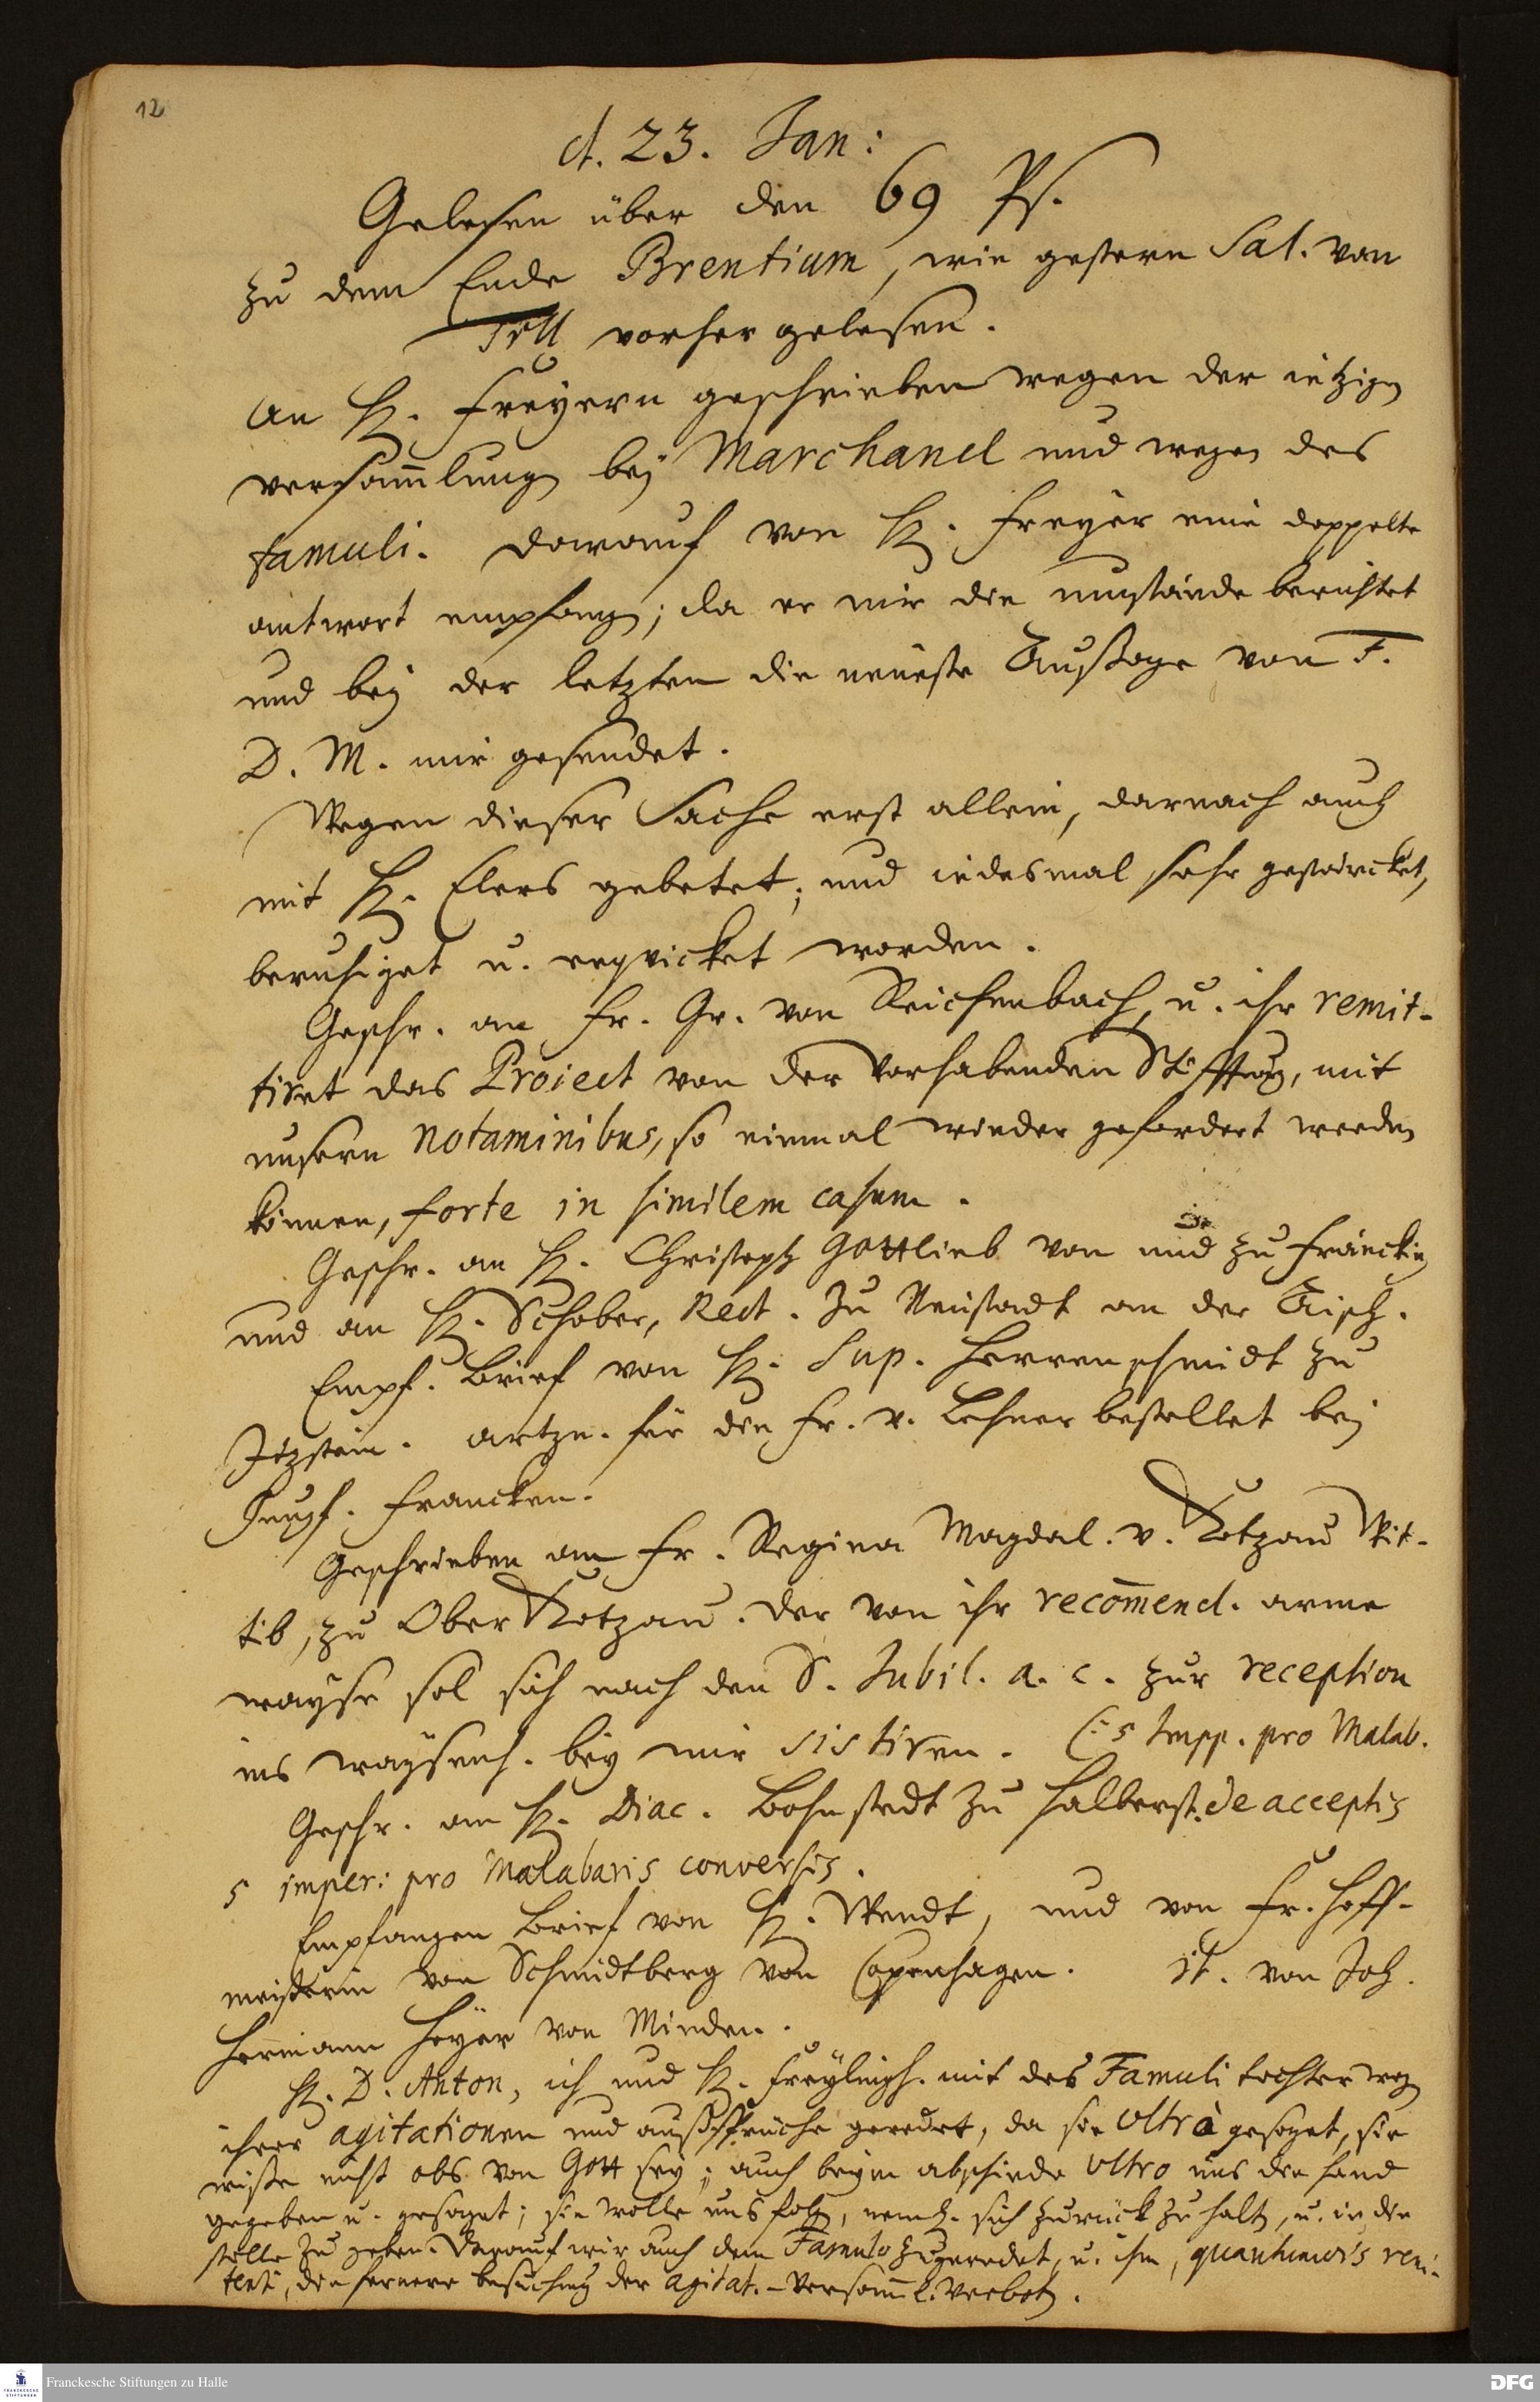 12
d. 23. Jan:
Gelesen über den 69 Ps.
zu dem Ende Brentium, wie gestern Sal. van
Till vorher gelesen.
An H. Freyern geschrieben wegen der ietzigen
versam̅lung bey Marchand und wegen des
famuli. darauf von H. Freyer eine doppelte
antwort empfang; da er mir die umstände berichtet
und bey der letzten die neueste Außage von F.
D. M. mir gesendet.
Wegen dieser Sache erst allein, darnach auch
mit H. Elers gebetet; und iedesmal sehr gestärcket,
beruhiget u. erqvicket worden.
Geschr. an Fr. Gr. von Reichenbach, u. ihr remit-
tiret das Proiect von der vorhabenden Stifftung, mit
unsern notaminibus, so einmal wieder gefordert werden
können, forte in similem casum.
Geschr. an H. Christoph Gottlieb von und zu Fräncking
und an H. Schober, Rect. zu Neustadt an der Aisch.
Empf. Brief von H. Sup. Herrenschmidt zu
Itzstein. artzn. für den Hr. v. Lehner bestellet bei
Jungf. Francken.
Geschrieben an Fr. Regina Magdal. v. Kotzau Wit-
tib, zu Ober Kotzau. der von ihr recom̅end. arme
wayse sol sich nach den S. Jubil. a. c. zur reception
ins waysenh. bey mir sistiren. (:5 Impp. pro Malab.
Geschr. an H. Diac. Bohnstedt zu Halberst. de acceptis
5 imper: pro Malabaris conversis.
Empfangen Brief von H. Wendt, und von Fr. Hoff-
meisterin von Schmidtberg von Copenhagen. it. von Joh.
Hermann Heyer von Minden.
H. D. Anton, ich und H. Freylingh. mit des Famuli tochter weg
ihrer agitationen und außsprüche geredet, da sie ultrò gesaget, sie
wiße nicht obs von Gott sey; auch beym abschiede ultro uns die hand
gegeben u. gesaget; sie wolle uns folg, neml. sich zurück zu halt, u. in die
stille zu geben. Darauf wir auch dem Famulo zugeredet, u. ihm, quantumvis reni-
tenti, die fernere besuchung der agitat.-versam̅l. verbot.
Franckesche Stiftungen zu Halle
DFG